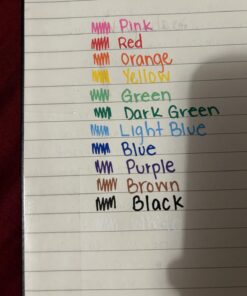 Pink
Red
Orange
Yellow
Green
Dark Green
Light Blue
Blue
Purple
Brown
Black